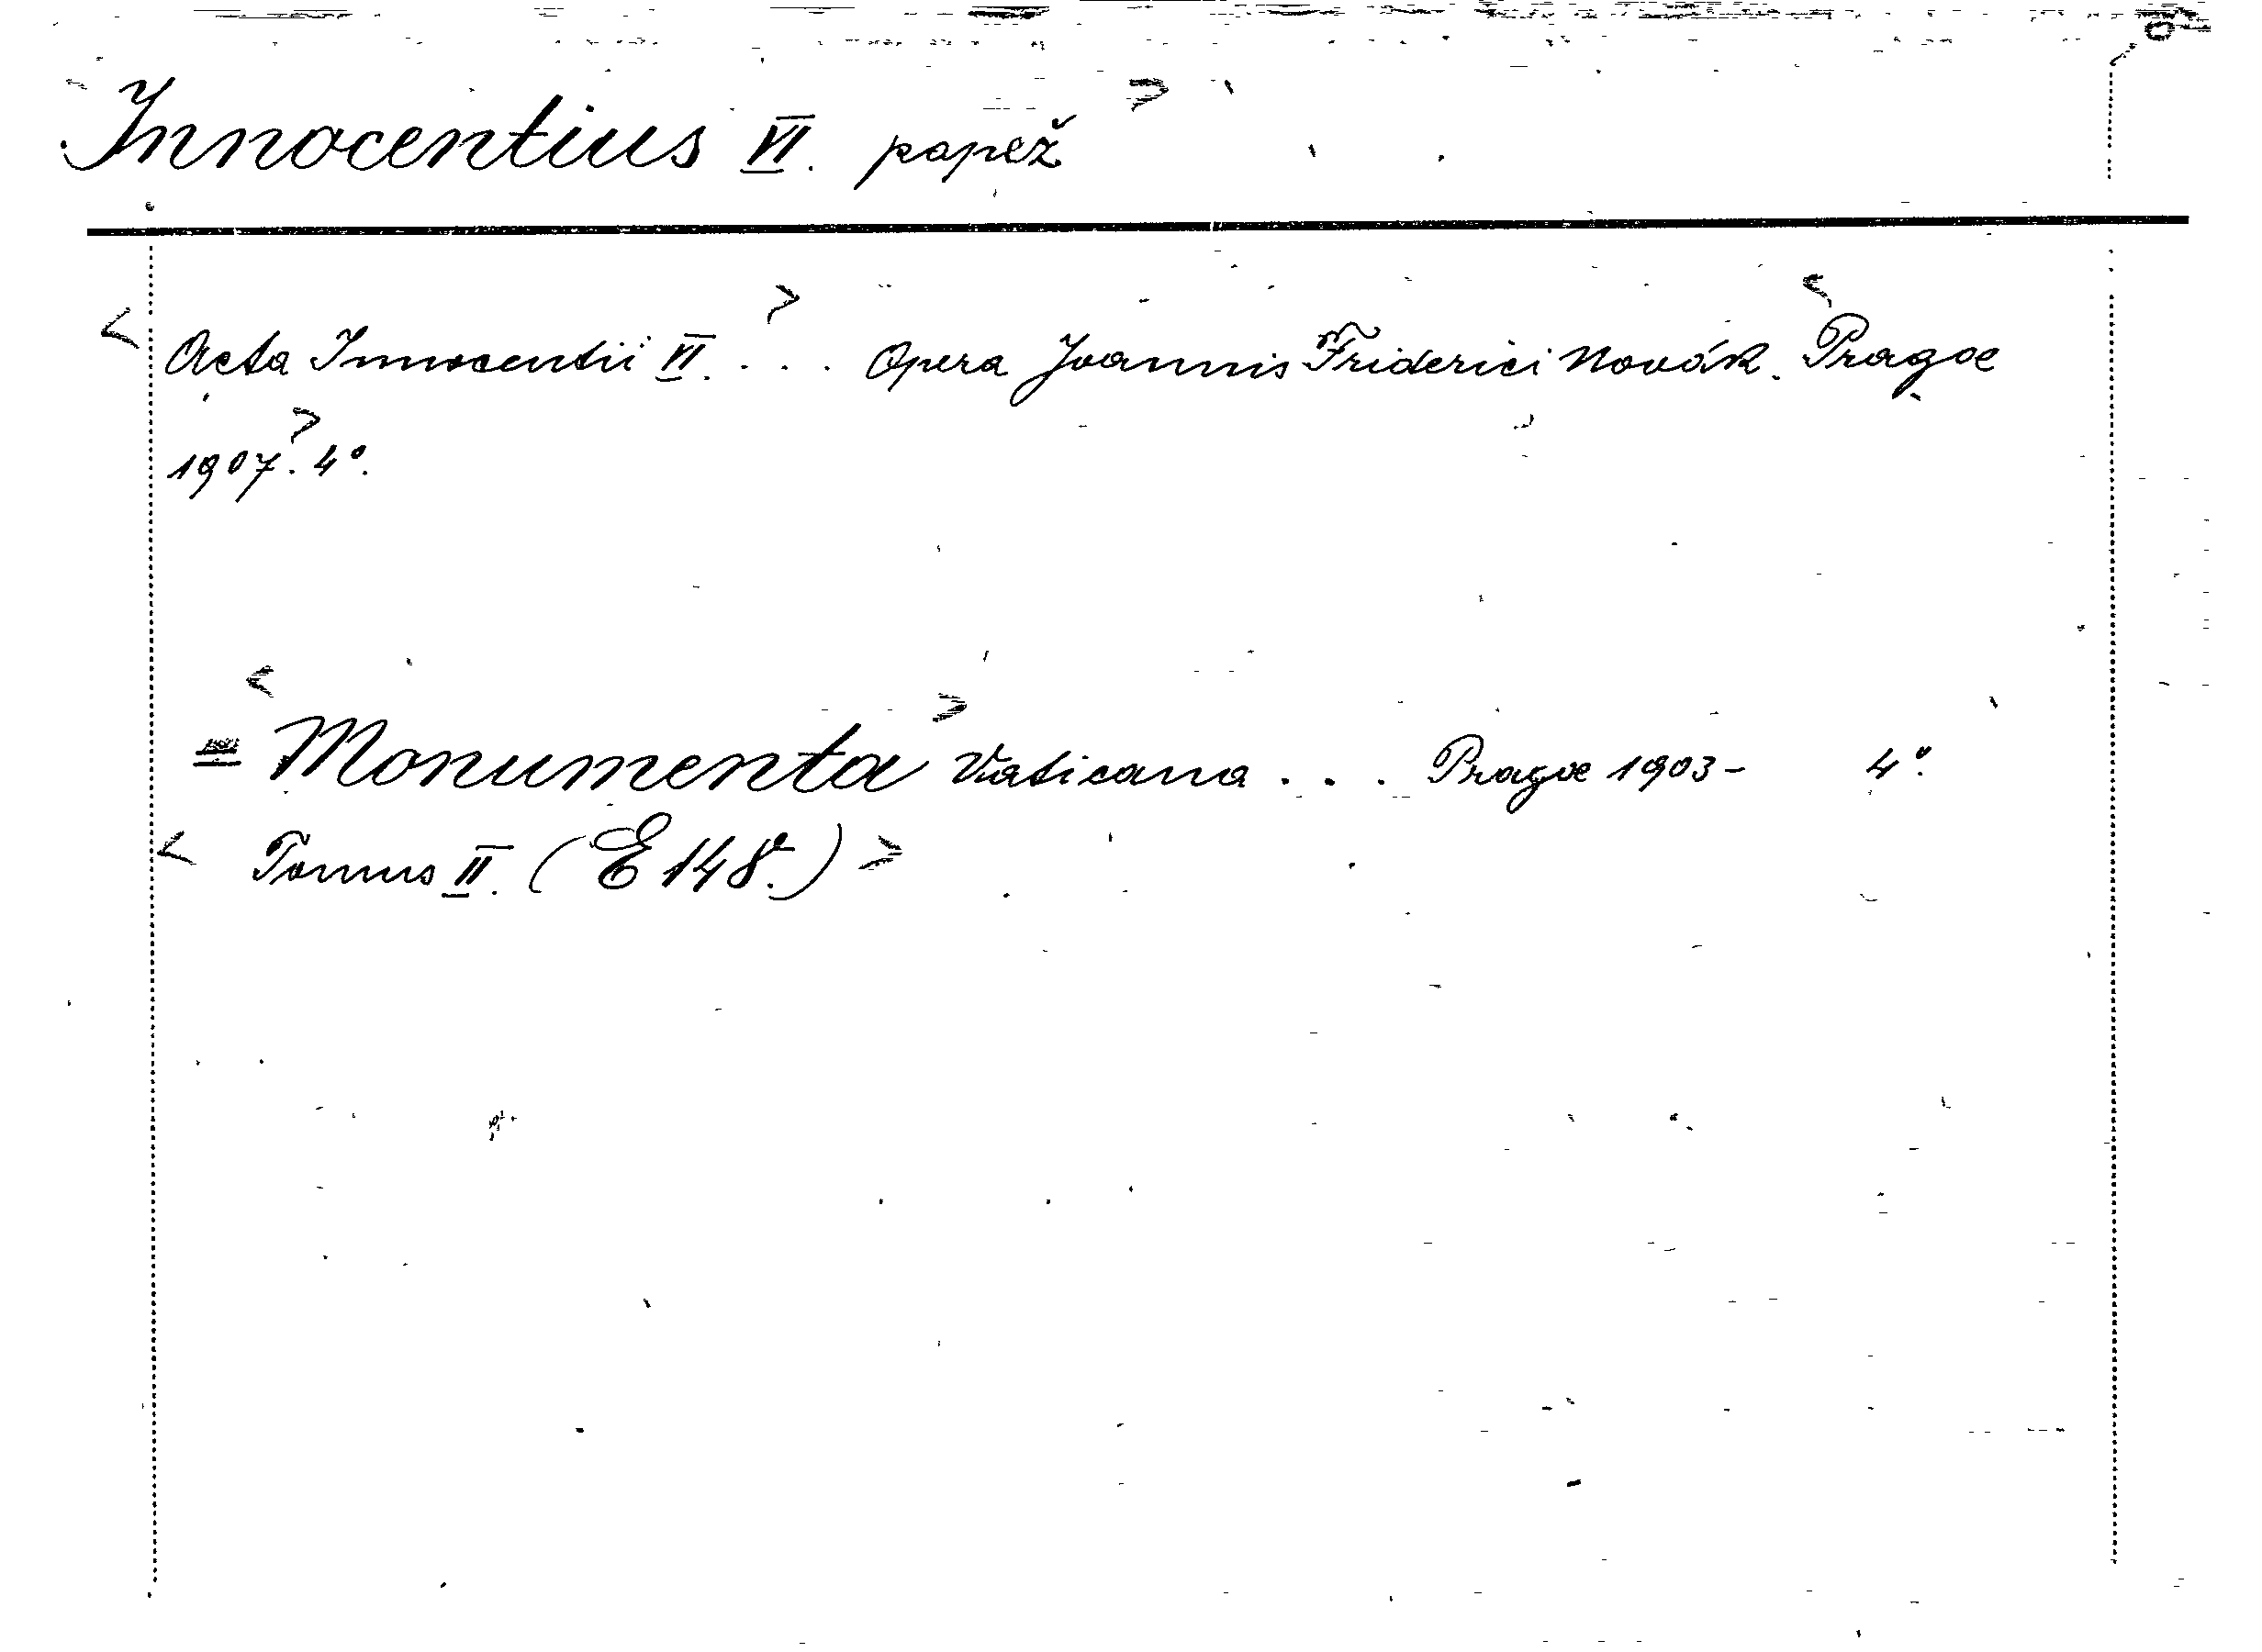 Innocentius VI. papež
Acta Innocentii VI. . . . Opera Joannis Friderici Novák. Pragae
1907. 4°.
= Monumenta Vaticana . . . Pragae 1903- 4°.
Tomus II. (E 148.)